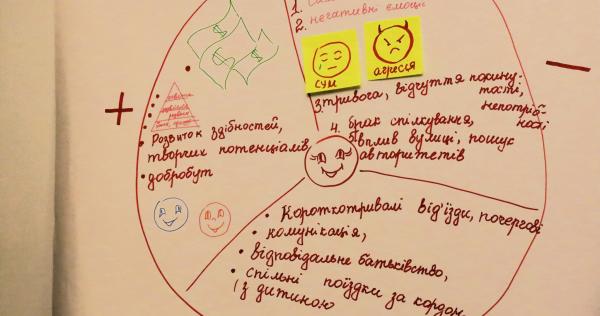 1.
2. негативні емоції
сум
агресія
3. тривога, відчуття покину-
тості,
непотріб-
ності
4. брак спілкування,
5 вплив вулиці, пошук
авторитетів
+
—
• Розвиток здібностей,
творчих потенціалів,
• добробут
• Короткотривалі від'їзди, почергові
• комунікація,
• відповідальне батьківство,
• спільні поїздки за кордон
(з дитиною